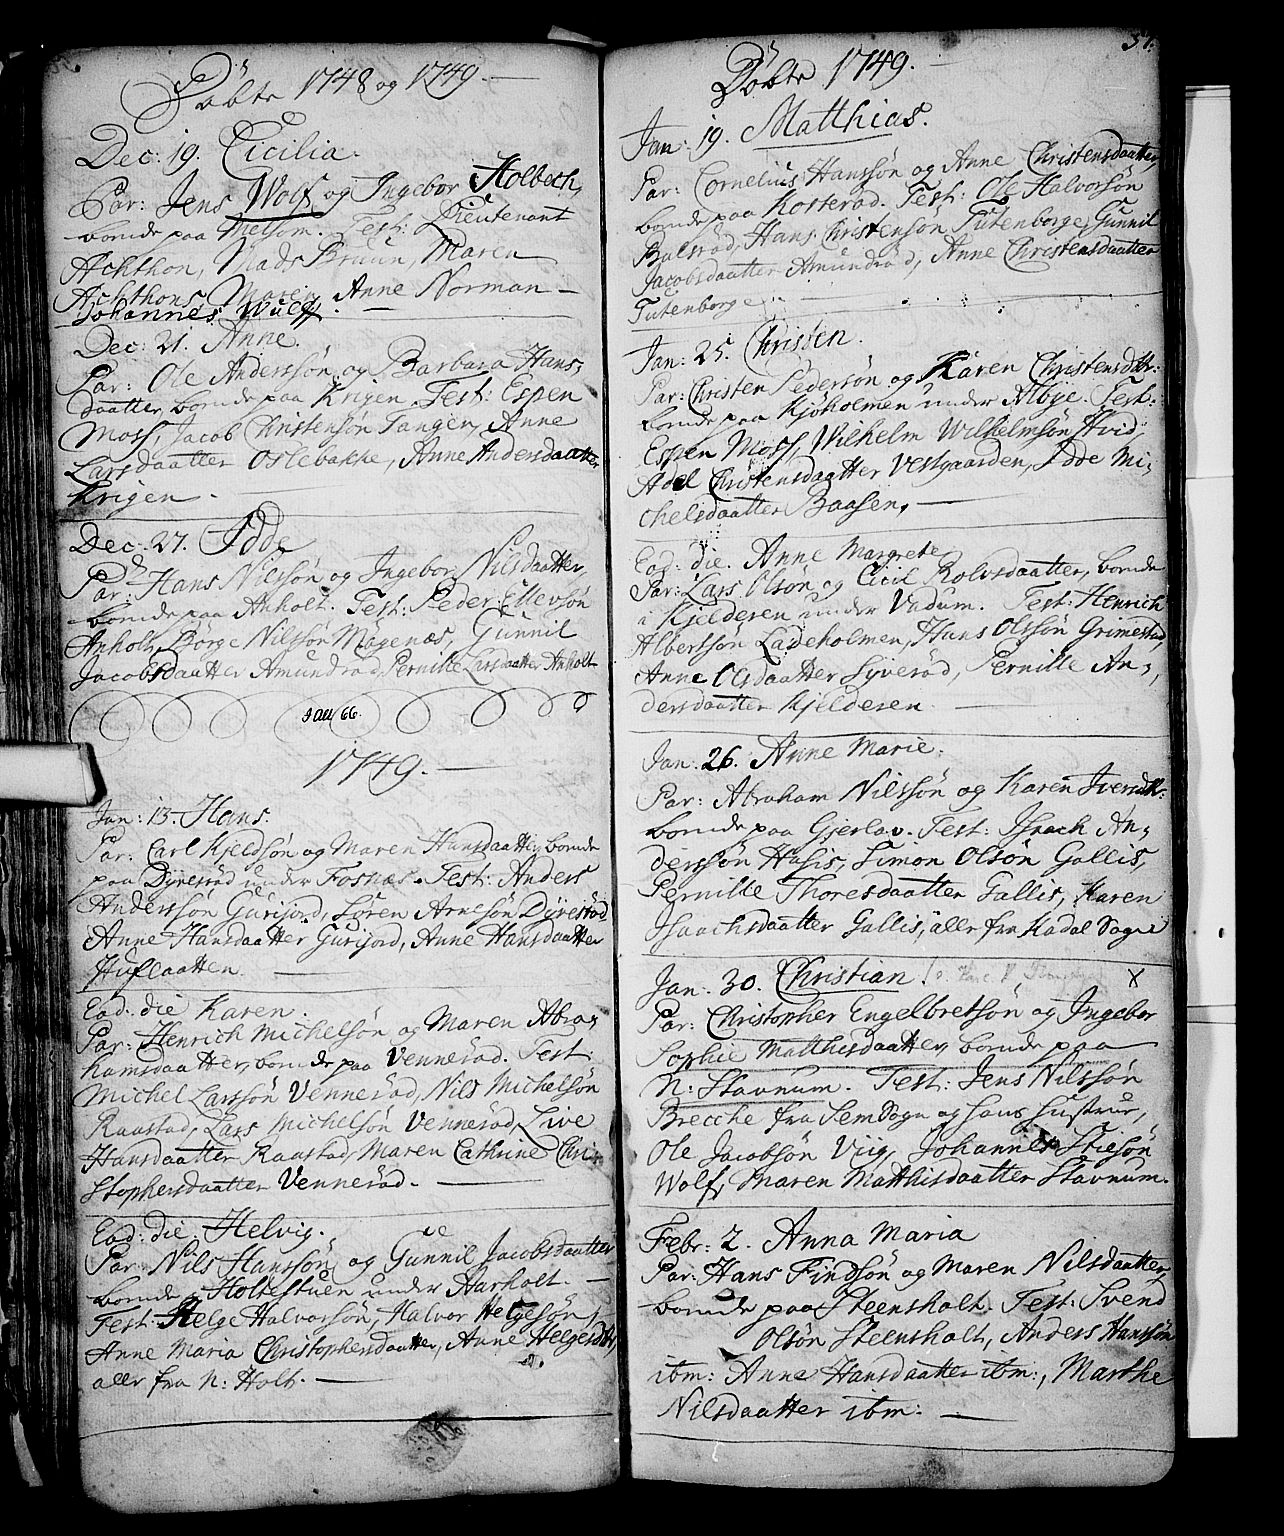 Döbte 1748 og 1749.
Dec: 19. Cicilia.
Par: Jens Wolf og Ingebor Holbech,
boende paa Melsom. Test: Lieutenant
Achthon, Mads Bruun, Maren
Achthons, Maren, Anne Norman —
Johannes Wulff. —
Dec: 21. Anne.
Par: Ole Anderssön og Barbara Hans-
daatter, boende paa Krigen. Test: Espen
Moss, Jacob Christensön Tangen, Anne
Larsdaatter Oslebakke, Anne Andersdaatter
Krigen.
Dec: 27. Idde
Par: Hans Nilssön og Ingebor Nilsdaatter,
boende paa Anholt. Test: Peder Ellevsön
Anholt, Borge Nilssön Mögenæs, Gunnil
Jacobsdaatter Amundrød, Pernille Larsdaatter Anholt
66.
1749.
Jan: 13. Hans.
Par: Carl Kjeldsön og Maren Hansdaatter, boende
paa Dyresröd under Fosnæs. Test: Anders
Anderssön Gurijord, Sören Arnesön Dyresröd
Anne Hansdaatter Gurijord, Anne Hansdaatter
Huflaatten.
Eod: die Karen.
Par: Henrich Michelsön og Maren Abra-
hamsdaatter, boende paa Venneröd. Test:
Michel Larssön Venneröd, Nils Michelsön
Raastad, Lars Michelsön Venneröd, Live
Hansdaatter Raastad, Maren Cathrine Chri-
stophersdaatter Venneröd.
Eod: die Helvig.
Par: Nils Hanssön og Gunnil Jacobsdaatter
boende Holtestuen under Aarholt. —
Test: Helge Halvorsön, Halvor Helgesön,
Anne Maria Christophersdaatter, Anne Helgesdtr,
alle fra N: Holt.
37.
Döbte 1749.
Jan: 19. Matthias.
Par: Cornelius Hanssön og Anne Christensdaatter,
boende paa Kosteröd. Test: Ole Halvorsön
Bolsröd, Hans Christensön Tutenborge, Gunnil
Jacobsdaatter Amundröd, Anne Christensdaatter
Tutenborge
Jan: 25. Christen.
Par: Christen Pedersön og Karen Christensdtr:
boende paa Kjöholmen under Alböe. Test:
Espen Moss, Wilhelm Wilhelmsön Hvid,
Adel Christensdaatter Vestgaarden, Idde Mi-
chelsdaatter Baasen,
Eod: die. Anne Margrete
Par: Lars Olsön og Cicil Rolvsdaatter, boende
i Kjelderen under Vadum. Test: Henrich
Albertsön Ladeholmen, Hans Olsön Grimestad,
Anne Olsdaatter Syveröd, Pernille An-
dersdaatter Kjelderen
Jan: 26. Anne Marie.
Par: Abraham Nilssön og Karen Iversdtr:
boende paa Gjerlav. Test: Isach An-
derssön Hasis, Simon Olsön Gallis,
Pernille Thoresdaatter Gallis, Karen
Isaachsdaatter Gallis, alle fra Kadal Sogn
Jan: 30. Christian. X
Par: Christopher Engelbretsön og Ingebor
Sophie Matthisdaatter, boende paa
N: Stavnum. Test: Jens Nilssön
Brecche fra Sem Sogn og hans hustrue,
Ole Jacobsön Viig, Johannes Stiesön
Wolf, Maren Matthisdaatter Stavnum.
Febr: 2. Anna Maria
Par: Hans Findsön og Maren Nilsdaatter,
boende paa Steensholt. Test: Svend
Olsön Steensholt, Anders Hanssön
ibm: Anne Hansdaatter ibm:, Marthe
Nilsdaatter ibm: